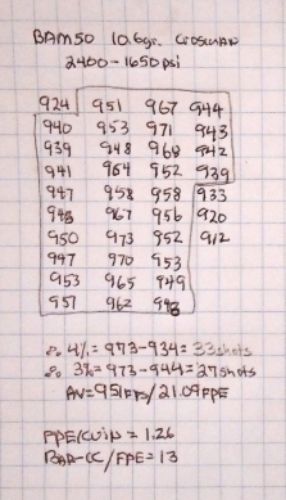 BAM50 10.6gr. CROSMAN
2400-1650psi
924 951 967 944
940 953 971 943
939 948 968 942
941 964 952 939
947 958 958 933
948 967 956 920
950 973 952 912
947 970 953
953 965 949
957 962 948
% 4%= 973-934= 33shots
% 3%= 973-944= 27shots
AV=951fps/21.09FPE
FPE/CUIN = 1.26
BAR-CC/FPE=13